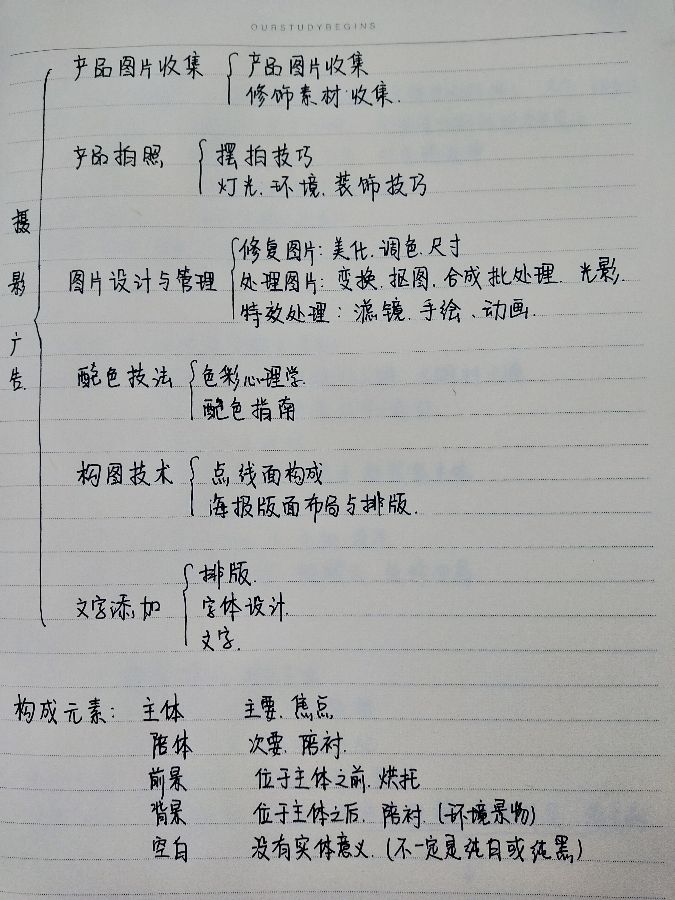 OURSTUDYBEGINS
摄影广告
产品图片收集
产品图片收集
修饰素材收集.
产品拍照
摆拍技巧
灯光.环境.装饰技巧
图片设计与管理
修复图片:美化.调色.尺寸
处理图片:变换.抠图.合成批处理.光影.
特效处理:滤镜.手绘、动画.
配色技法
色彩心理学.
配色指南
构图技术
点线面构成
海报版面布局与排版.
文字添加
排版.
字体设计
文字.
构成元素: 主体 主要.焦点
陪体 次要.陪衬.
前景 位于主体之前.烘托
背景 位于主体之后.陪衬.(环境景物)
空白 没有实体意义.(不一定是纯白或纯黑)